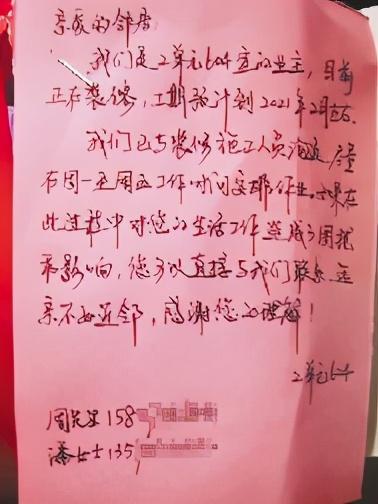 亲爱的邻居
我们是2单元604室的业主，目前
正在装修，工期预计到2021年2月
我们已与装修施工人员沟通 尽量
在周一至周五工作时间安排作业，如果在
此过程中对您的生活工作造成了困扰
和影响，您可以直接与我们联系 远
亲不如近邻，感谢您的理解！
2单元604
周先生158
潘女士135